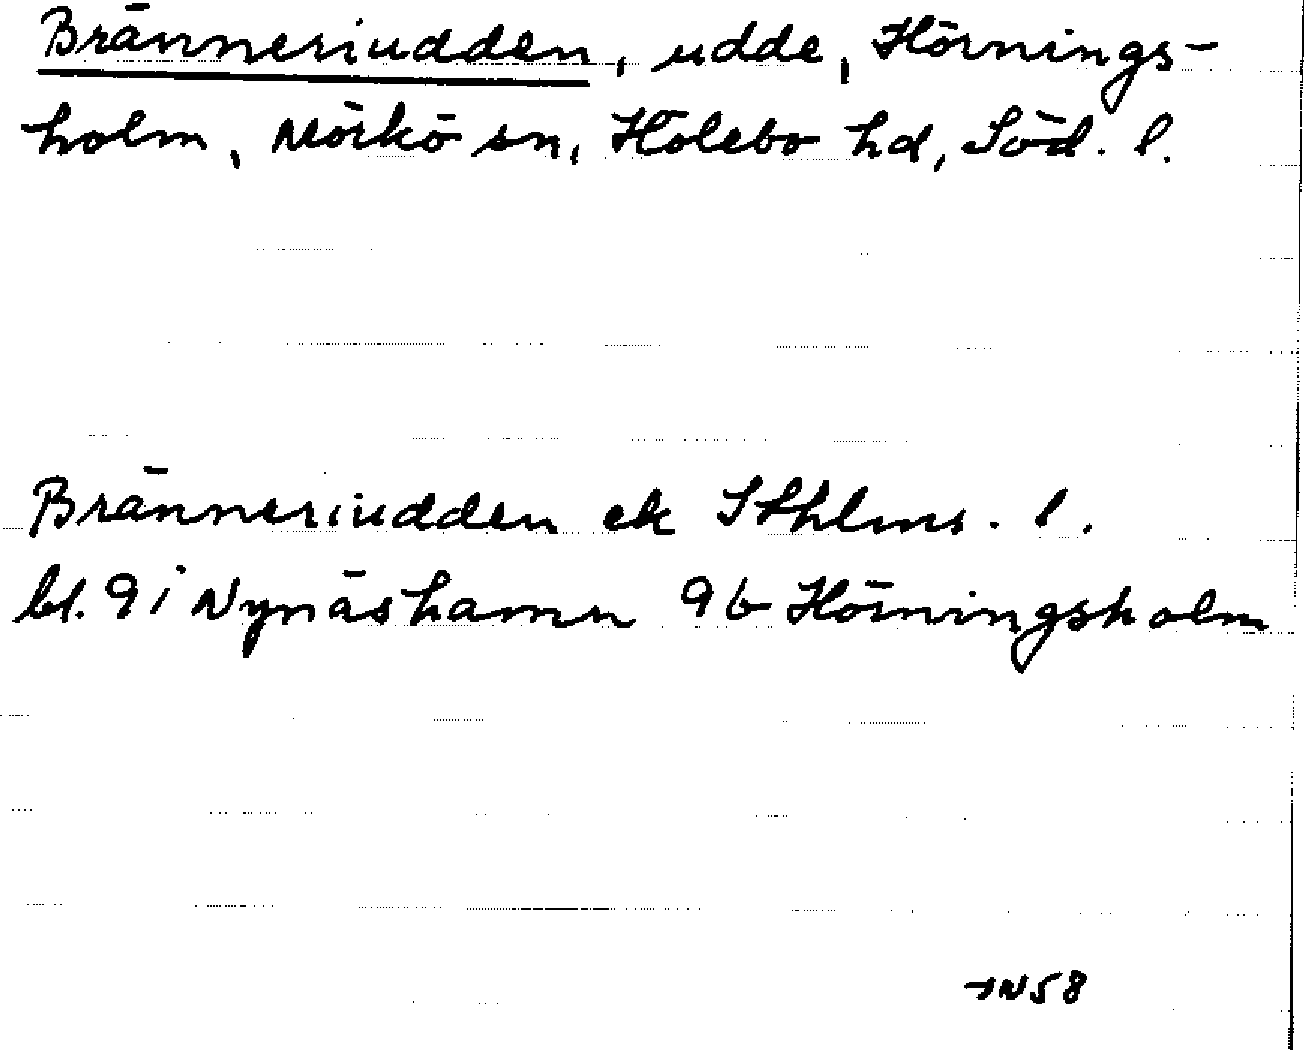 Bränneriudden, udde, Hörnings-
holm, Mörkö sn, Hölebo hd, Söd. l.
Bränneriudden ek Sthlms. l.
bl. 9 i Nynäshamn 9b Hörningsholm
JN58